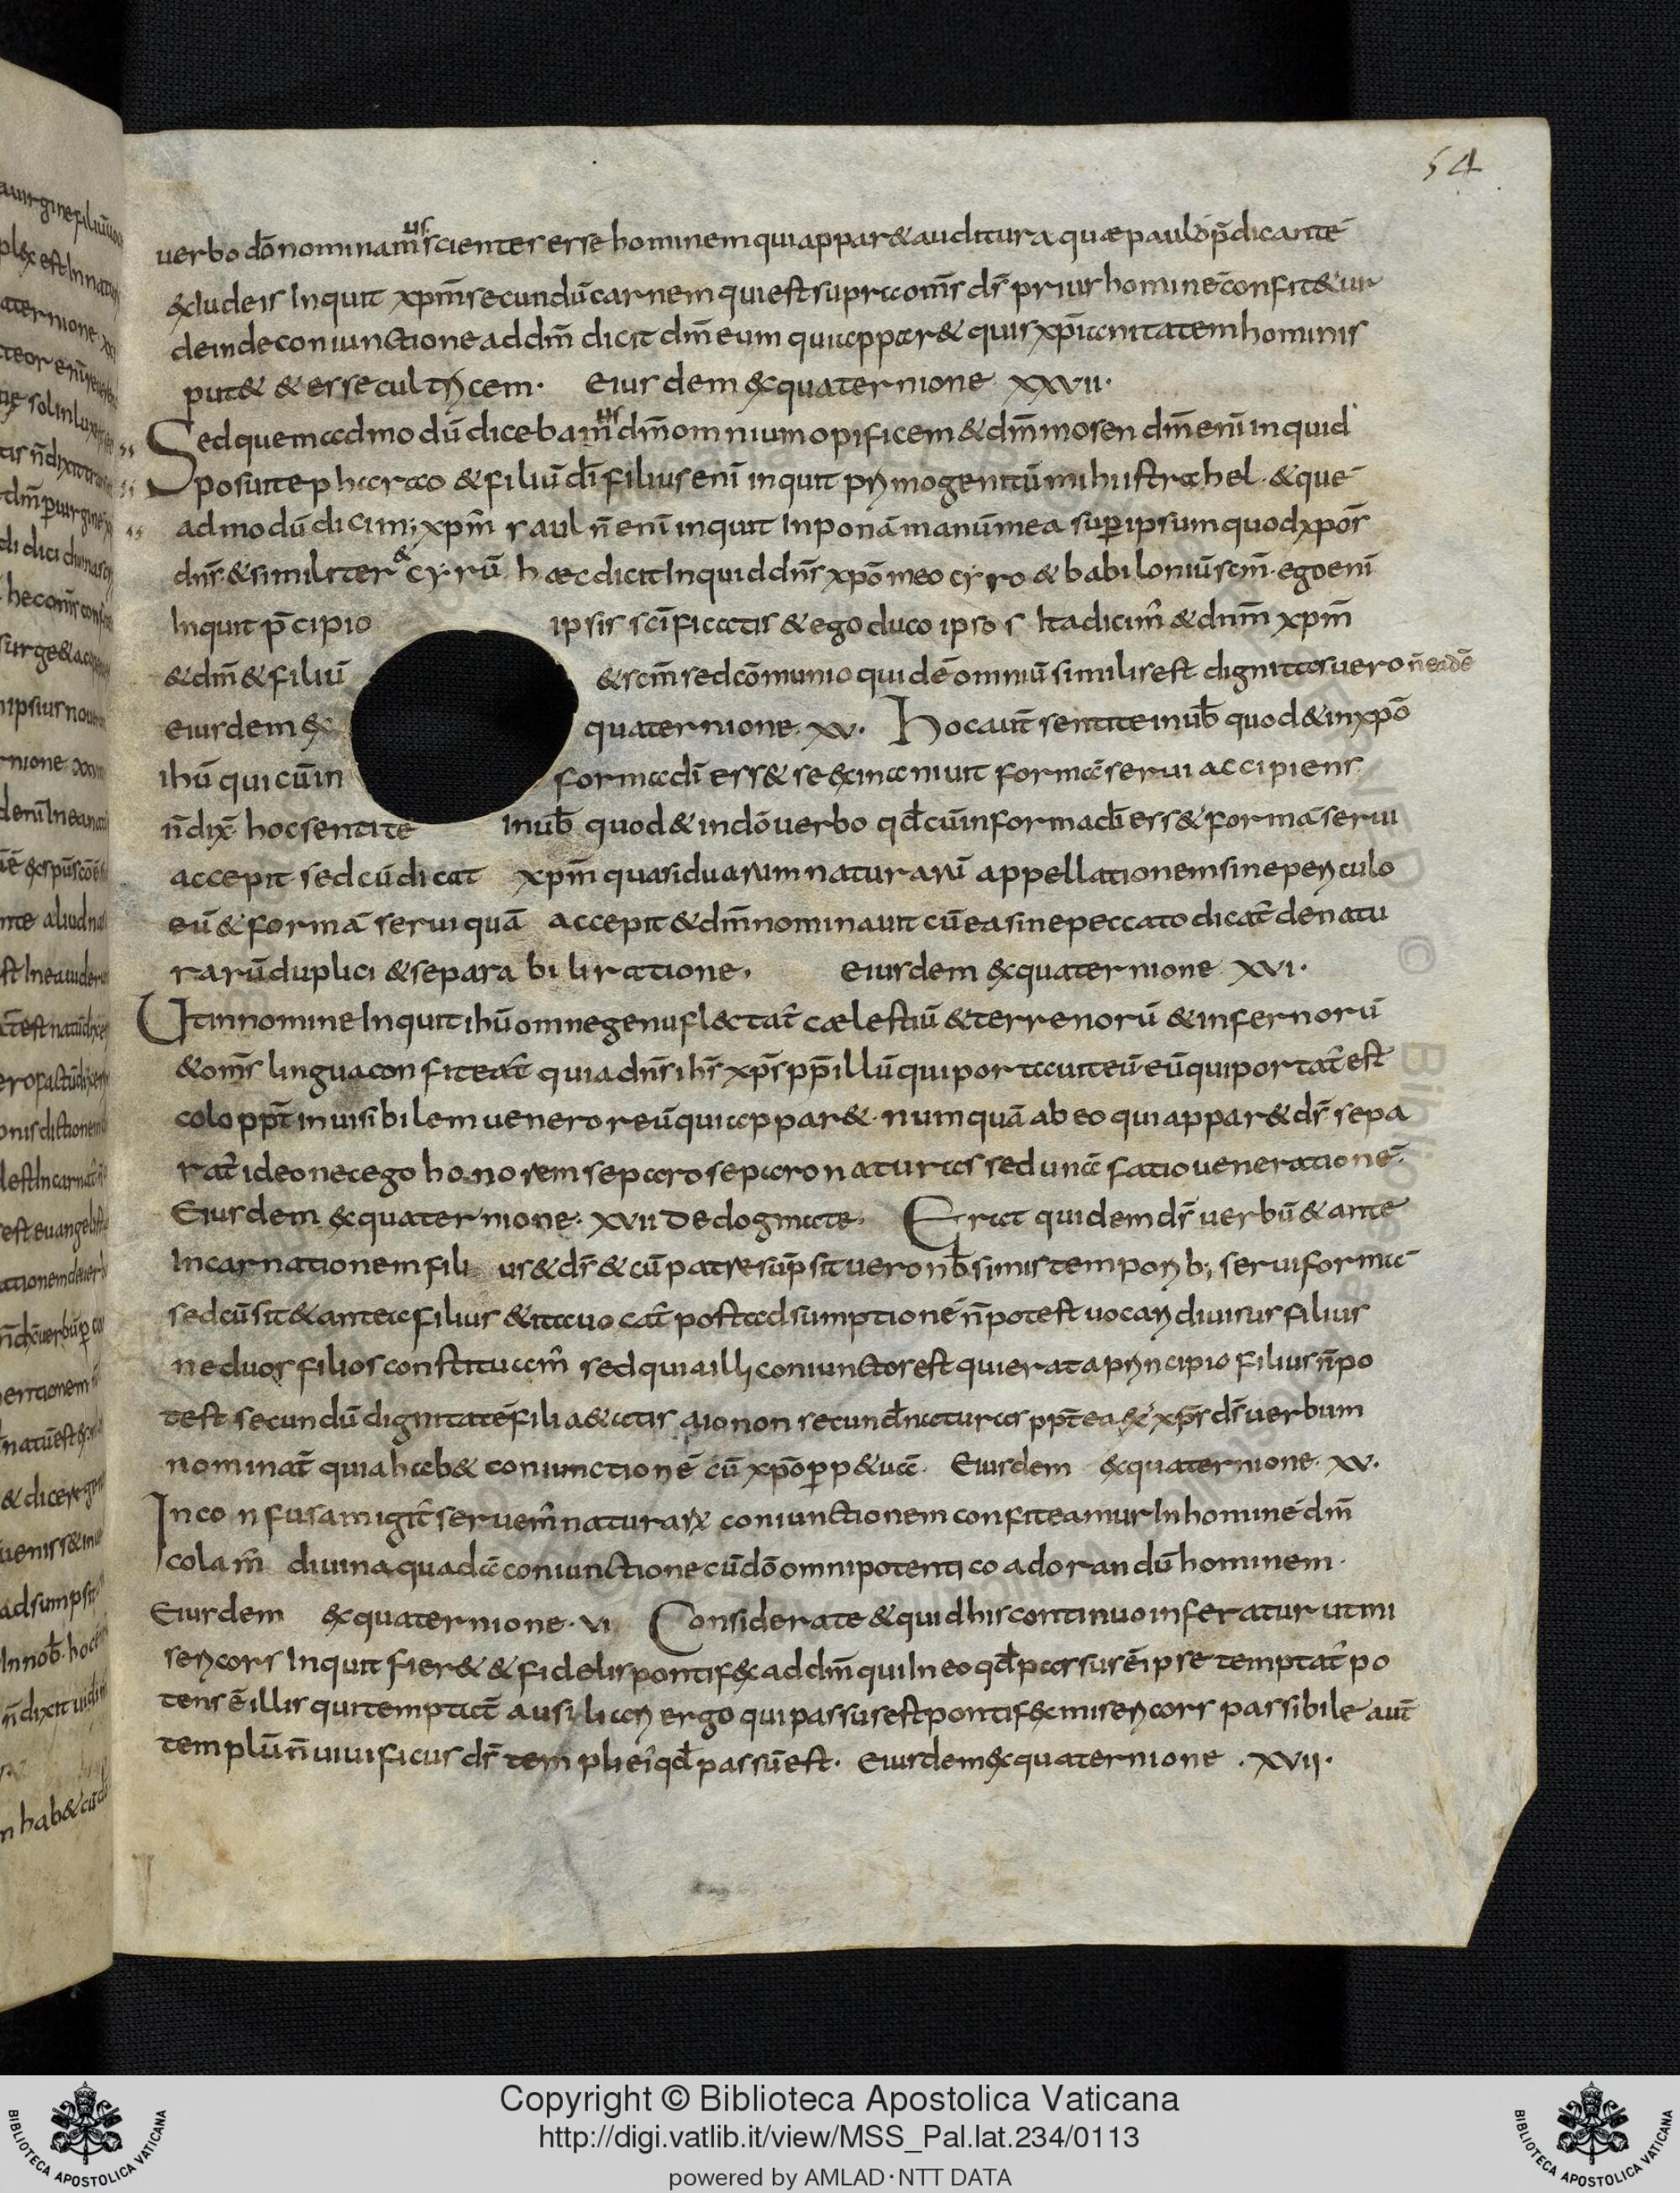 54
uerbo dō nominam̄us scienter esse hominem qui appar& auditura quæ paulo p̄dicante
& iudeis inquit xp̄m secundū carnem qui est supra om̄s d̄s prius hominē confit&ur
deinde coniunctione ad dm̄ dicit dm̄ eum qui appar& quis xp̄ianitatem hominis
put& & esse cultricem· eiusdem ex quaternione xxvii·
Sed quemadmodū dicebam̄us dm̄ omnium opificem & dm̄ mosen dm̄ enī inquid
posui te pharao & filiū dī filius enī inquit primogenitū mihi istrahel· & quē
admodū dicim; xp̄m saul n̄ enī inquit inponā manū mea sup ipsum quod xp̄os
dn̄s· & similiter & cyrū hæc dicit inquid dn̄s xp̄o meo cyro & babiloniū scm̄· ego enī
inquit p̄cipio ipsis scīficatis & ego duco ipsos ita dicim̄ & dnm̄ xpm̄
& dm̄ & filiū & scm̄ sed cōmunio quidē omniū similis est dignitas uero n̄ eadē
eiusdem ex quaternione· xv· Hoc aut̄ sentite in uob̄ quod & in xp̄o
ihū qui cū in forma dī ess& se exinaniuit formā serui accipiens
n̄ dix̄ hoc sentite in uob̄ quod & in dō uerbo qd̄ cū in forma dī ess& formā serui
accepit sed cū dicat xp̄m quasi duarum naturarū appellationem sine periculo
eū & formā serui quā accepit & dm̄ nominauit cū ea sine peccato dicat̄ de natu
rarū duplici & separabili ratione· eiusdem ex quaternione xvi·
Ut in nomine inquit ihū omne genu flectat̄ cælestiū & terrenorū & infernorū
& om̄s lingua confiteat̄ quia dn̄s ihs̄ xp̄s pp̄ illū qui portauit eū eū qui portat̄ est
colo ppt̄ inuisibilem ueneror eū qui appar& numquā ab eo qui appar& d̄s sepa
rat̄ ideo nec ego honorem separo separo naturas sed unā facio uenerationē·
Eiusdem ex quaternione· xvii de dogmate· Erat quidem d̄s uerbū & ante
incarnationem filius & d̄s & cū patre sūpsit uero nob̄simis temporib; serui formā
sed cū sit & antea filius & ita uocat̄ post adsumptionē n̄ potest uocari diuisus filius
ne duos filios constituam̄ sed quia illi coniunctos est qui erat a principio filius n̄ po
test secundū dignitatē filia&atis non secund̄ naturas ppt̄ ea & xp̄s d̄s uerbum
nominat̄ quia hab& coniunctionē cū xp̄o pp&uā· Eiusdem ex quaternione· xv·
Inconfusam igit̄ seruem̄ naturarx coniunctionem confiteamur in hominē dm̄
colam̄ diuina quadā coniunctione cū dō omnipotenti coadorandū hominem·
Eiusdem ex quaternione· vi Considerate & quid his continuo inferatur ut mi
sericors inquit fier& & fidelis pontifex ad dm̄ qui in eo qd̄ passus ē ipse temptat̄ po
tens ē illis qui temptat̄ ausiliari ergo qui passus est pontifex misericors passibile aut̄
templū n̄ uiuificus d̄s templi ei qd̄ passū est· Eiusdem ex quaternione· xvii·
Copyright © Biblioteca Apostolica Vaticana
http://digi.vatlib.it/view/MSS_Pal.lat.234/0113
powered by AMLAD·NTT DATA
BIBLIOTECA APOSTOLICA VATICANA
BIBLIOTECA APOSTOLICA VATICANA